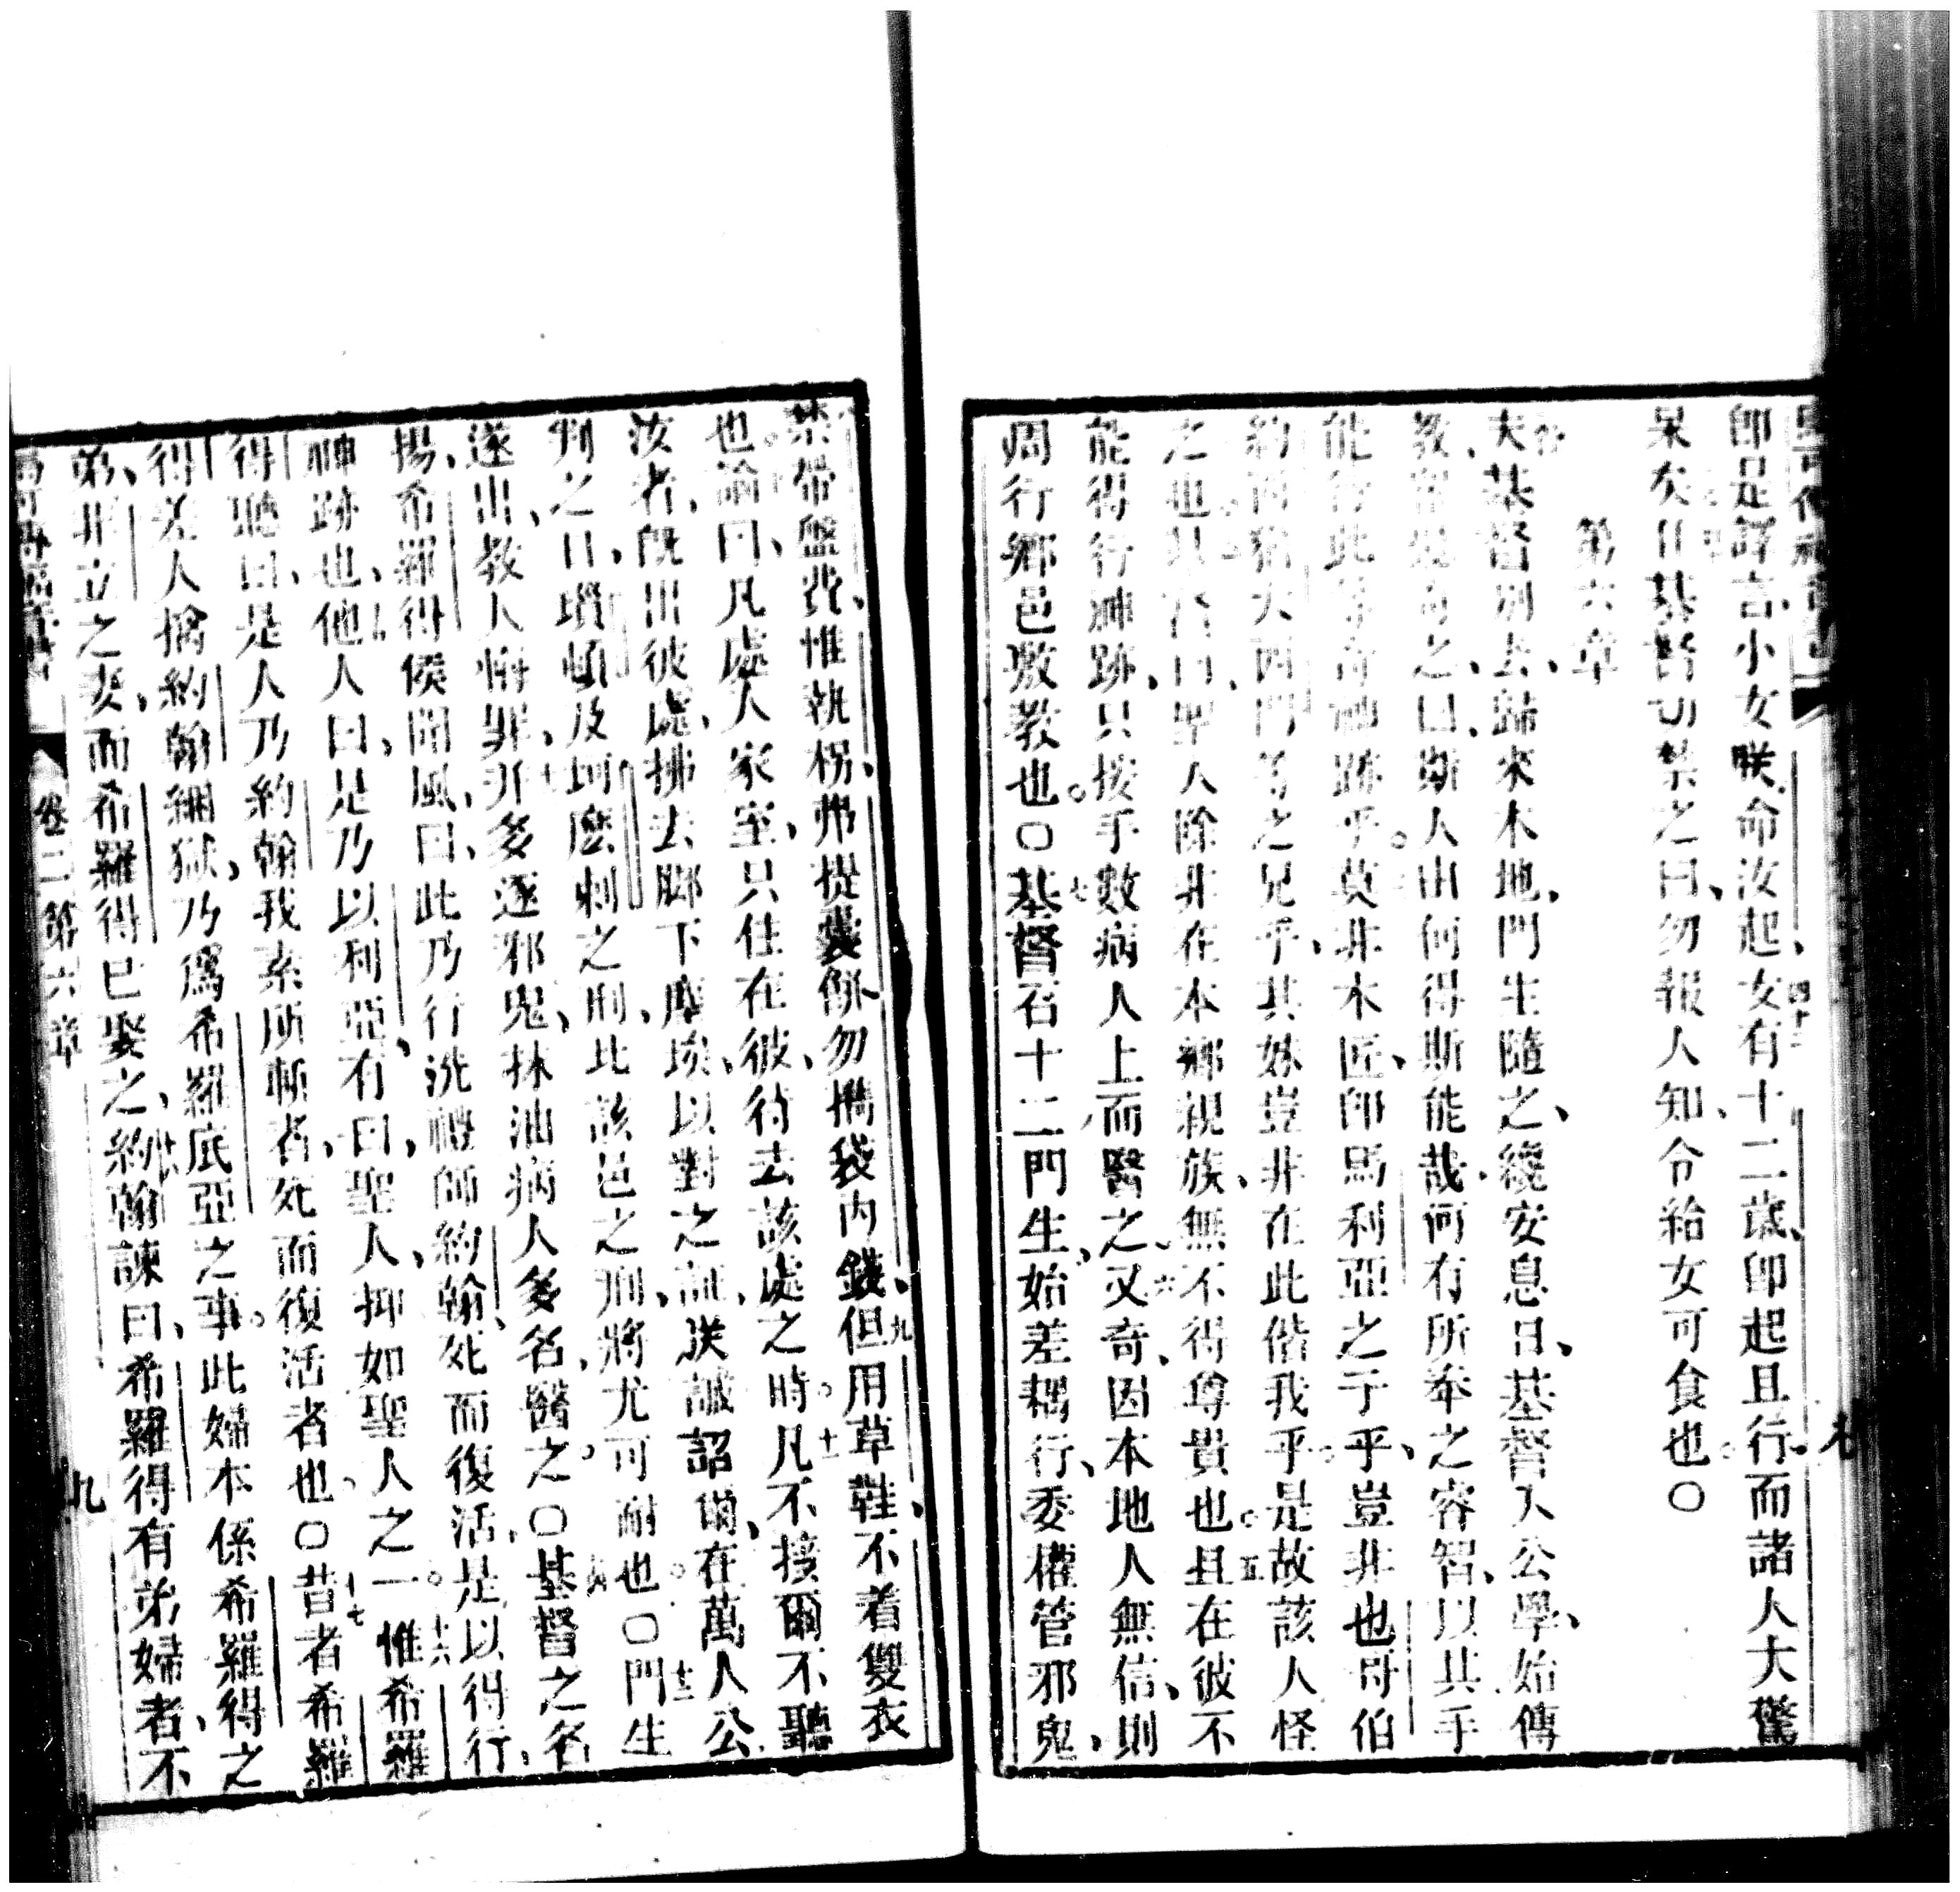 即是譯言、小女朕命汝起女有十二歲、即起且行、而諸人大驚
呆矣、基督切禁之曰、勿報人知、令給女可食也。○
第六章
夫基督別去、歸來本地、門生隨之、纔安息日、基督入公學、始傳
教、之曰、斯人由何得斯能哉、何有所奉之睿智、以其手
能行此等奇神跡乎。莫非木匠、即馬利亞之子乎、豈非也哥伯
約西猶大西門等之兄乎、其妹豈非在此偕我乎。是故該人怪
之也。曰、聖人除非在本鄉親族、無不得尊貴也。且在彼不
能得行神跡、只按手數病人上、而醫之。又奇、因本地人無信、則
周行鄉邑敷教也。○基督召十二門生、始差耦行、委權管邪鬼、
禁帶盤費、惟執柺、弗提囊餅、勿攜袋內錢、但用草鞋、不着雙衣
也。諭曰、凡處人家室、只住在彼、待去該處之時。凡不接爾不聽
汝者、既出彼處、拂去腳下塵埃、以對之証。誠詔爾、在萬人公
判之日、瑣頓及坷麼剌之刑、比該邑之刑、將尤可耐也。○門生
遂出、教人悔罪、并多逐邪鬼、抹油病人多名、醫之。○基督之名
揚、希羅得侯聞風、曰、此乃行洗禮師約翰、死而復活、是以得行
神跡也、他人曰、是乃以利亞、有曰、聖人、抑如聖人之一。惟希羅
得聽曰、是人乃約翰我素所斬者、死而復活者也。○昔者希羅
得差人擒約翰綑獄、乃為希羅底亞之事。此婦本係希羅得之
弟、非立之妻、而希羅得已娶之、約翰諫曰、希羅得有弟婦者、不
卷二第六章
九